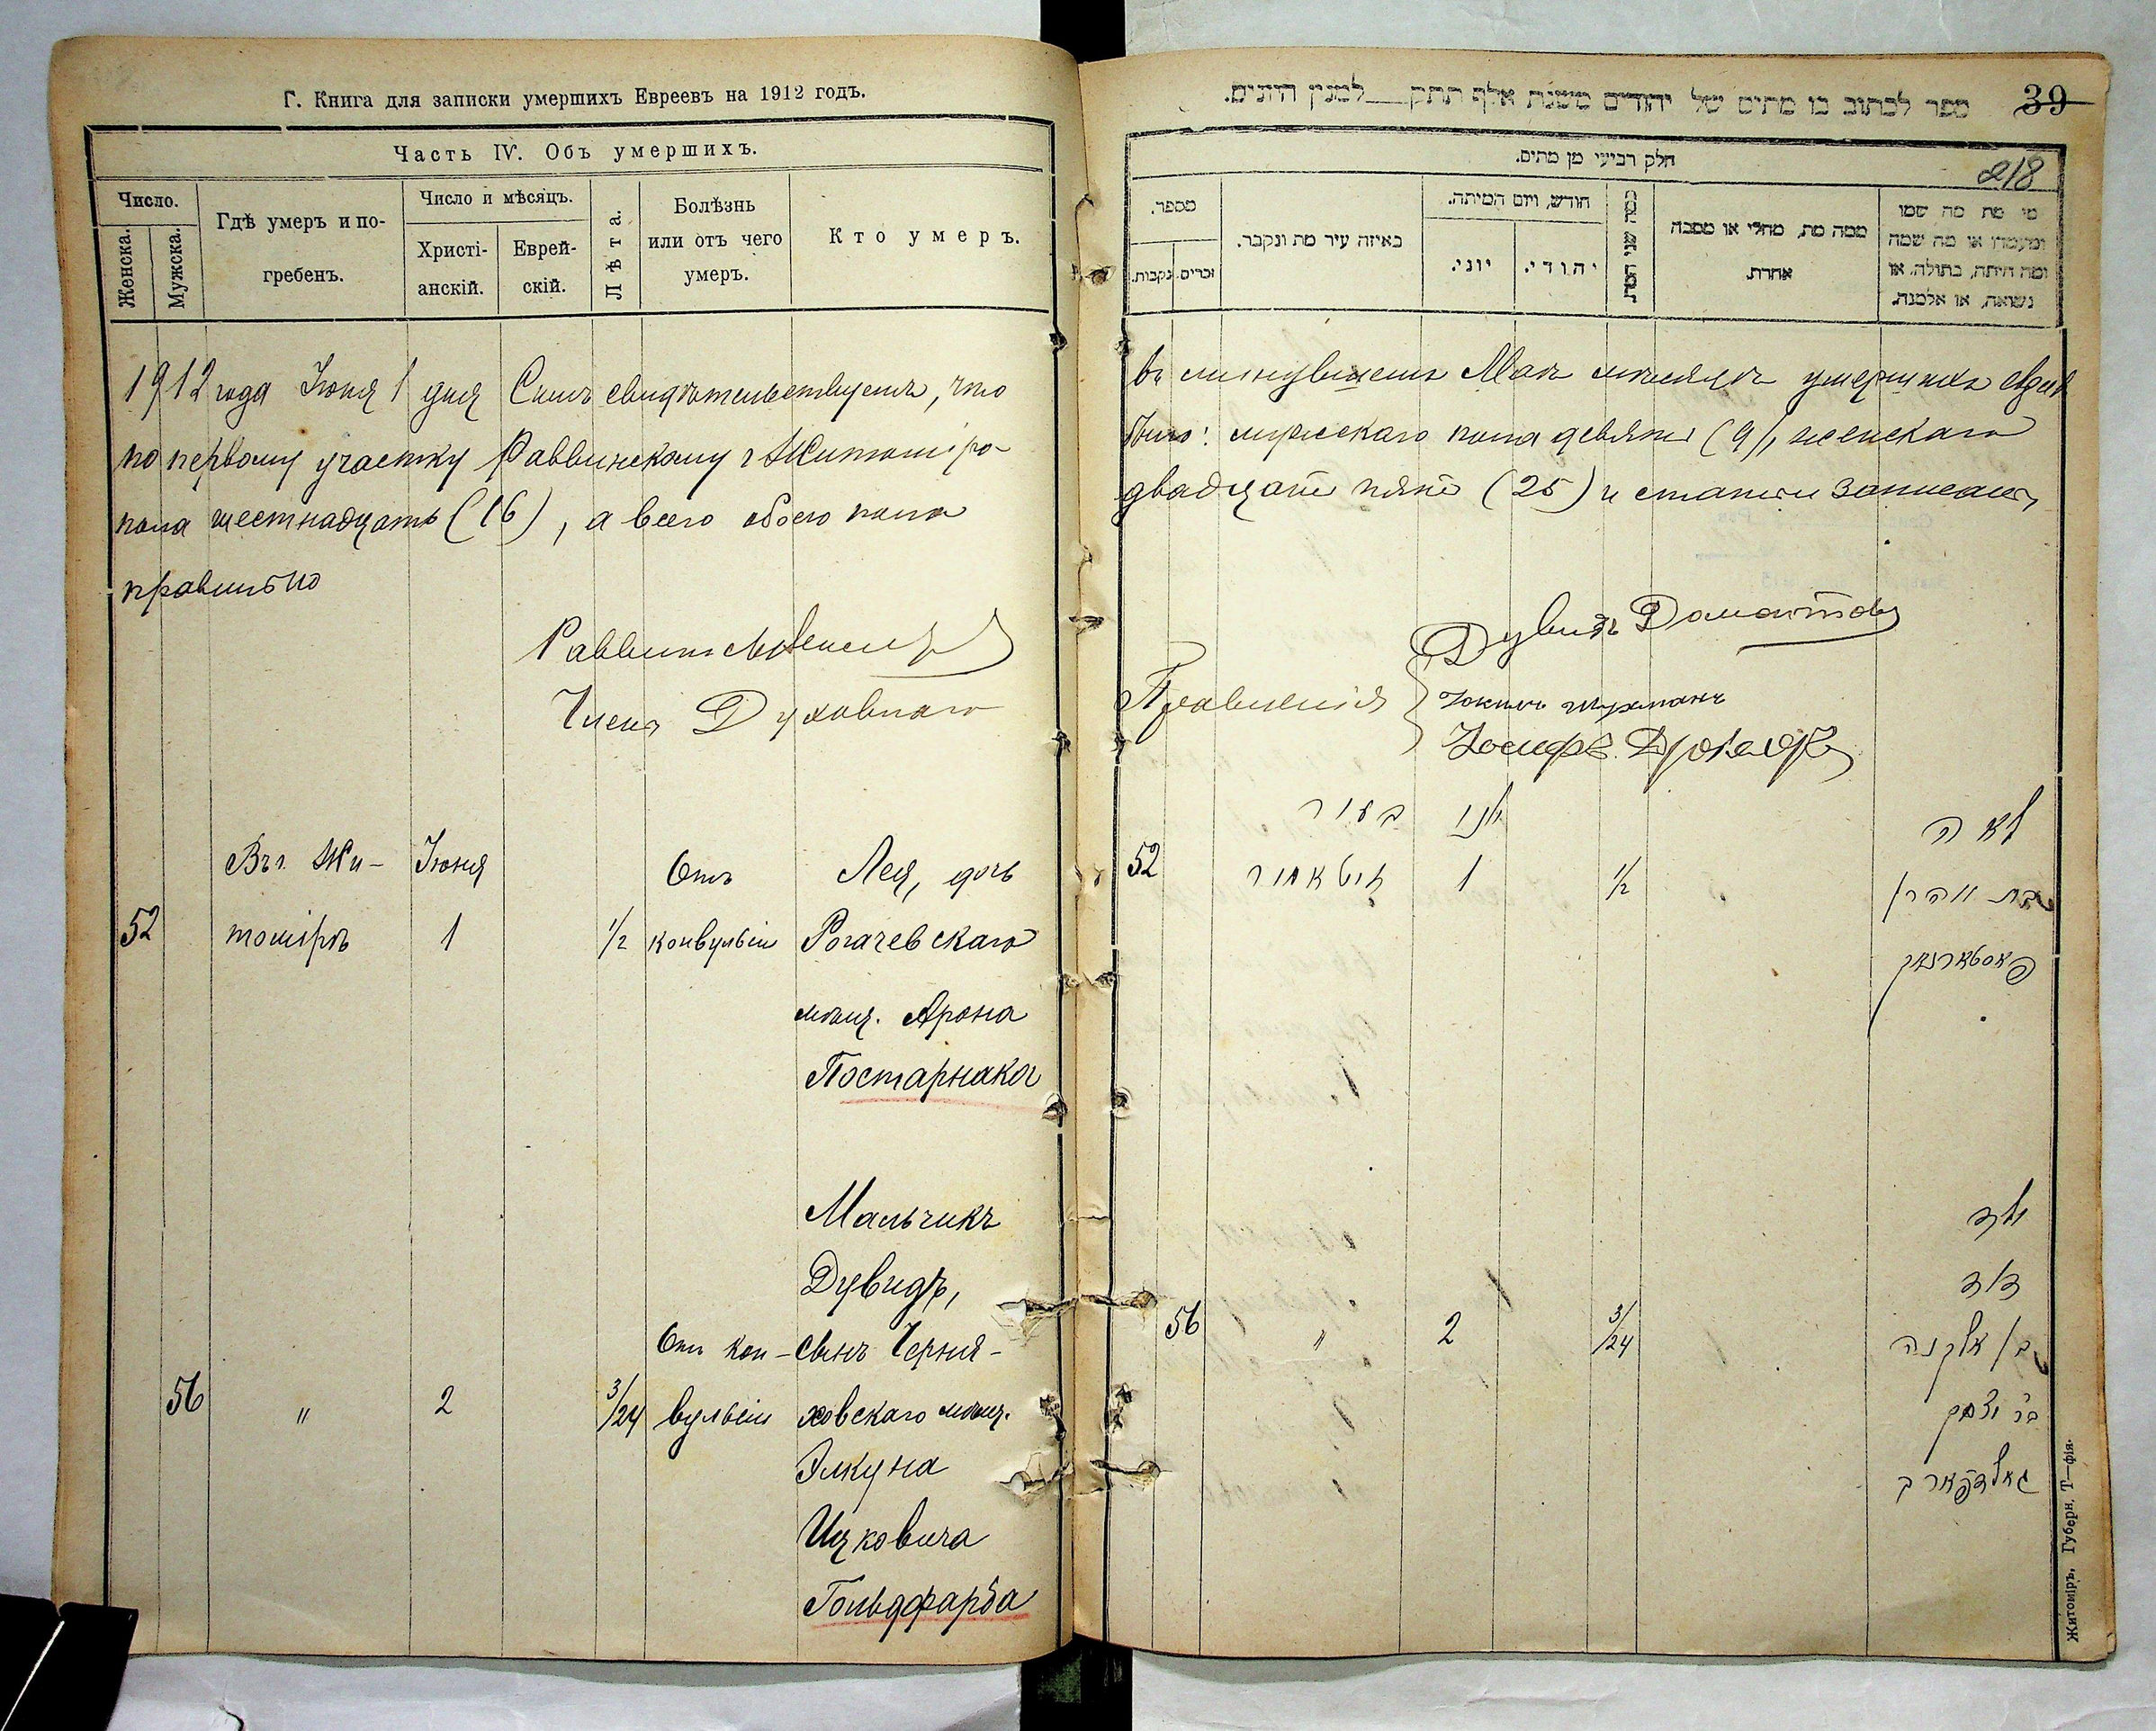 Г. Книга для записки умершихъ Евреевъ на 1912 годъ.
Часть IV. Объ умершихъ.
Число.
Женска.
Мужска.
Гдѣ умеръ и по-
гребенъ.
Число и мѣсяцъ.
Христі-
анскій.
Еврей-
скій.
Лѣта.
Болѣзнь
или отъ чего
умеръ.
Кто умеръ.
1912 года Іюня 1 дня Симъ свидѣтельствуемъ, что
по первому участку Раввинскому г Житоміро-
пола шестнадцать (16), а всего обоего пола
правильно
Раввинъ
Члены Духовнаго
Въ г. Жи- Іюня Отъ Лея, дочь
52 томірѣ 1 1/2 конвульсіи Рогачевскаго
мѣщ. Арона
Постарнака
Мальчикъ
Дувидъ,
Отъ кон- сынъ Черня-
56 " 2 3/24 вульсіи ховскаго мѣщ.
Элкуна
Ицковича
Гольдфарба
ספר לכתוב בו מתים של יהודים משנת אלף תתק___למנין היונים.
39
חלק רביעי מן מתים.
218
מספר.
נקבות.
זכרים
באיזה עיר מת ונקבר.
חודש, ויום המיתה.
יוני.
יהודי.
כמה שני המת
ממה מת, מחלי או מסבה
אחרת.
מי מת מה שמו
ומעמדו או מה שמה
ומה היתה, בתולה, או
נשואה, או אלמנה.
въ минувшемъ Маѣ мѣсяцѣ умершихъ евреевъ
было: мужскаго пола девять (9), женскаго
двадцать пять (25) и статьи записаны
Дувидъ
Правленія
Іосифъ
בעיר יוני לאה
52 זיטאמיר 1 1/2 בת אהרן
פאסטארנאק
ילד
דוד
56 " 2 3/24 בן אלקנה
בר יצחק
גאלדפארב
Житоміръ, Губерн. Т—фія.